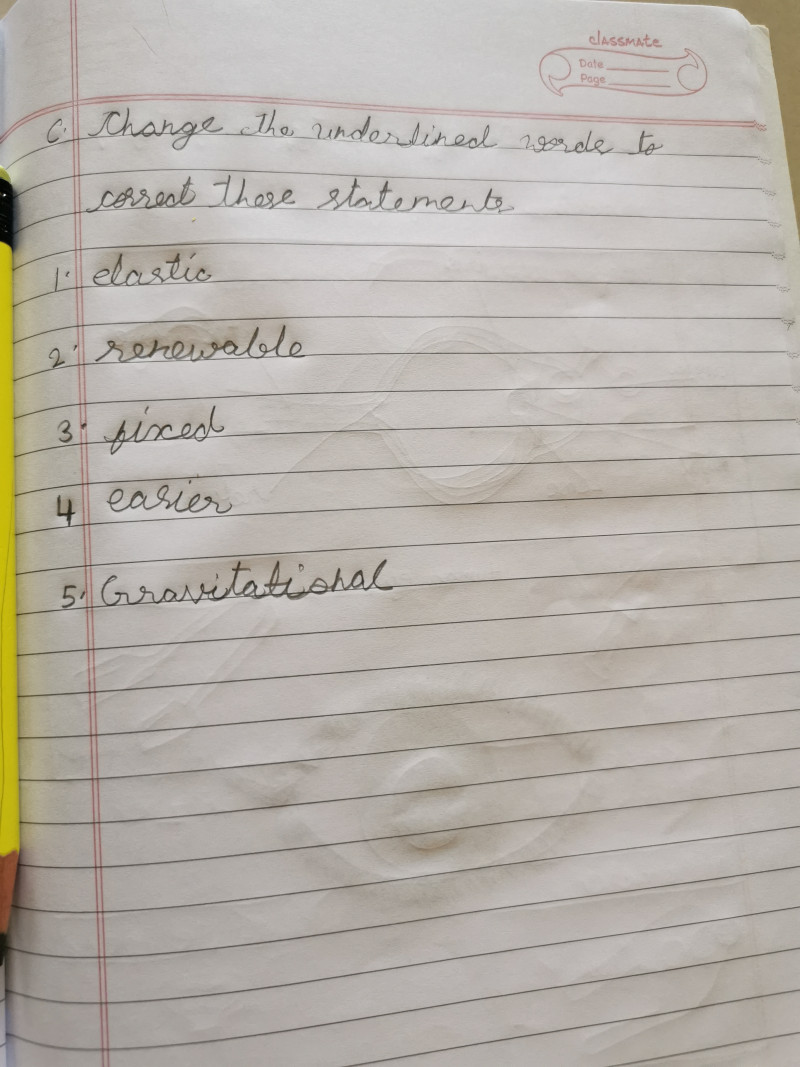 classmate
Date
Page
C. Change the underlined words to
correct these statements
1. elastic
2. renewable
3. fixed
4 easier
5. Gravitational